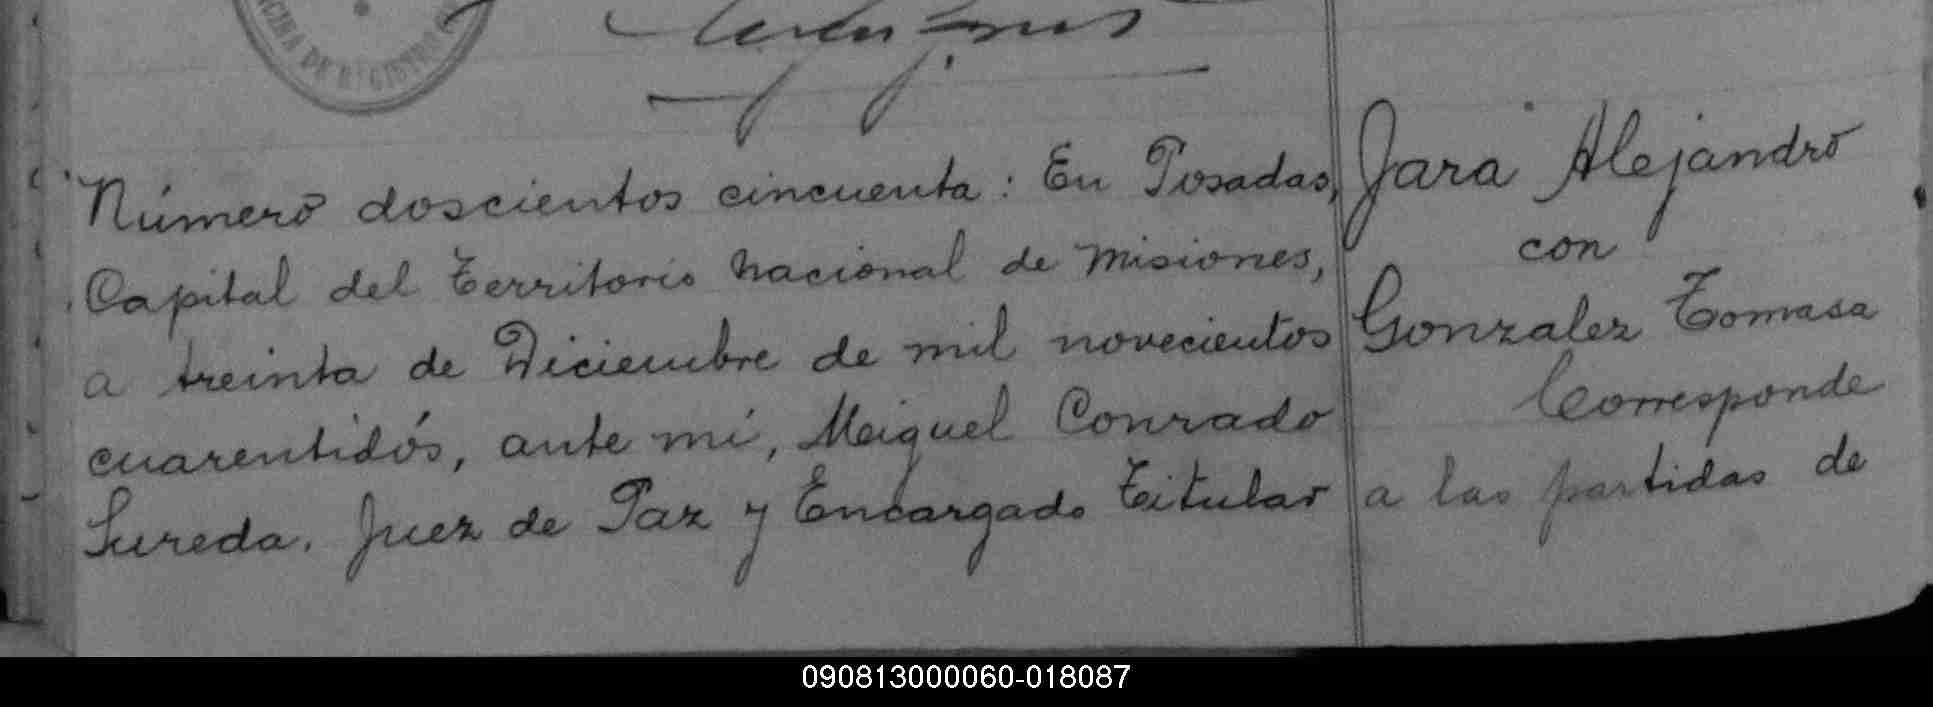 CINA DE REGISTRO
Número doscientos cincuenta: En Posadas,
Capital del Territorio Nacional de Misiones,
a treinta de Diciembre de mil novecientos
cuarentidós, ante mí, Miguel Conrado
Sureda, Juez de Paz y Encargado Titular
Jara Alejandro
con
Gonzalez Tomasa
Corresponde
a las partidas de
090813000060-018087